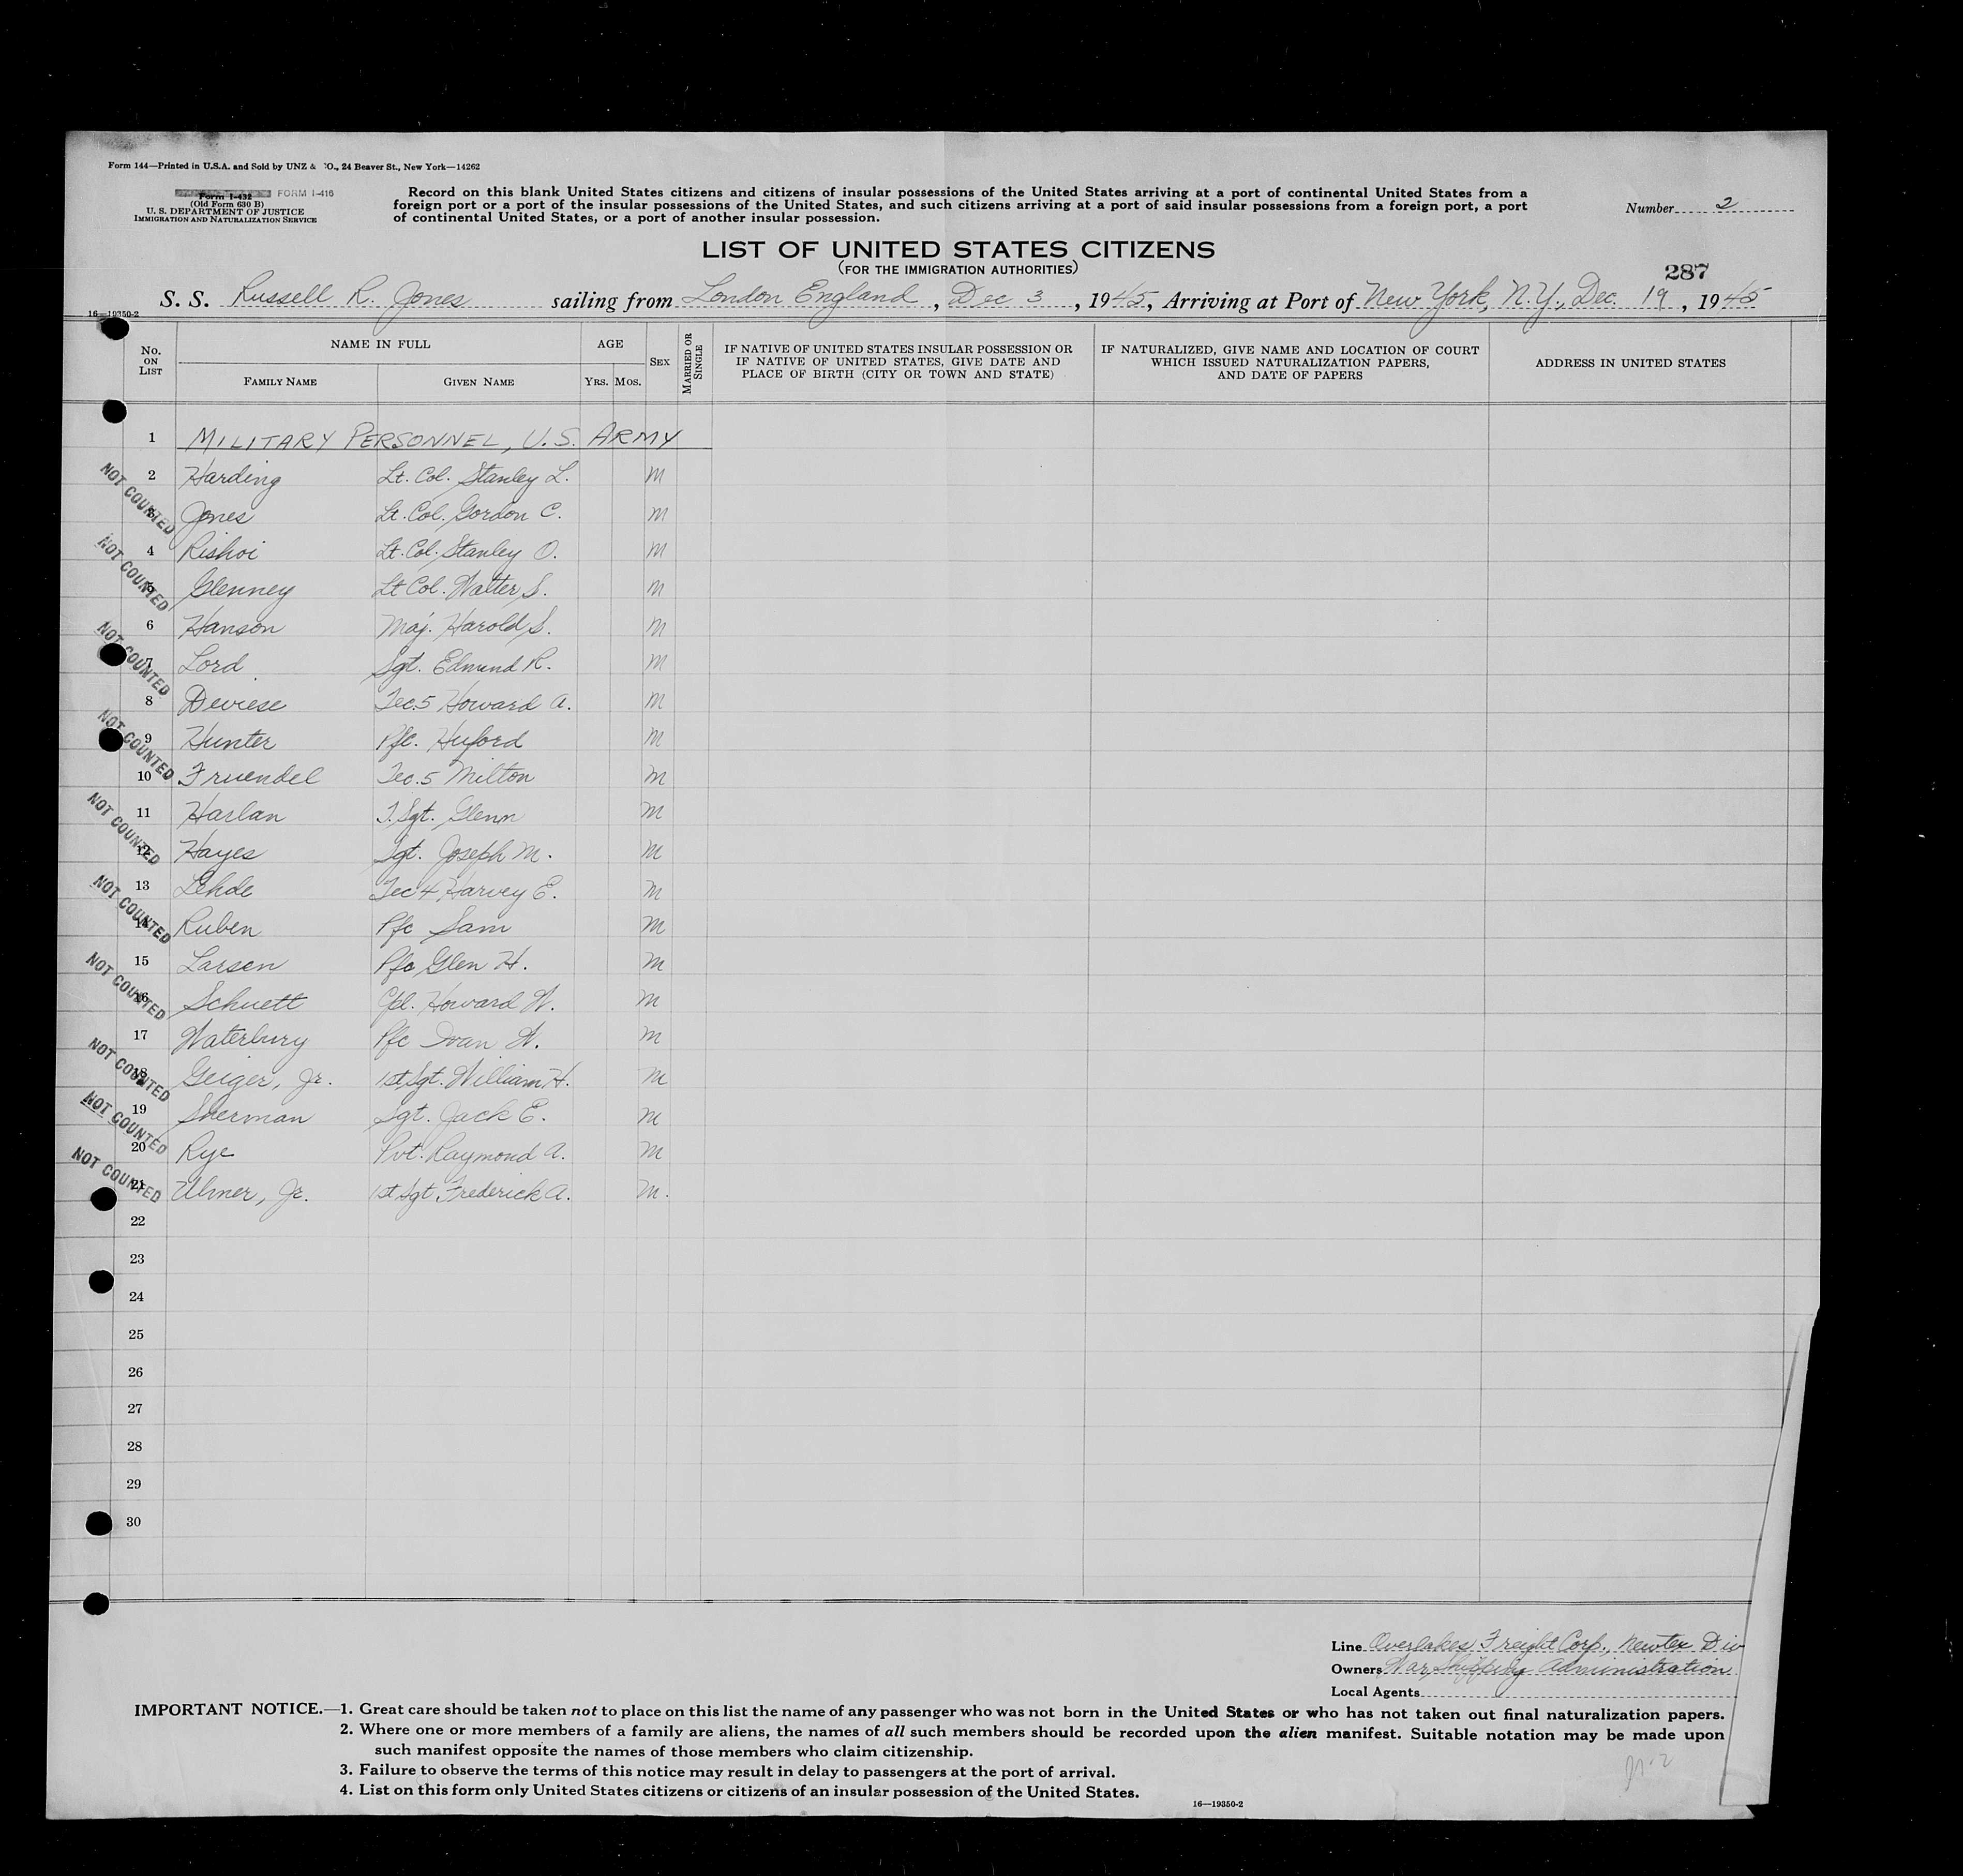 Form 144—Printed in U.S.A. and Sold by UNZ & CO., 24 Beaver St., New York—14262
Form I-432 FORM I-416
(Old Form 630 B)
U. S. DEPARTMENT OF JUSTICE
IMMIGRATION AND NATURALIZATION SERVICE
Record on this blank United States citizens and citizens of insular possessions of the United States arriving at a port of continental United States from a
foreign port or a port of the insular possessions of the United States, and such citizens arriving at a port of said insular possessions from a foreign port, a port
of continental United States, or a port of another insular possession.
Number 2
LIST OF UNITED STATES CITIZENS
(FOR THE IMMIGRATION AUTHORITIES)
287
S. S. Russell R. Jones sailing from London England, Dec 3, 1945, Arriving at Port of New York, N.Y., Dec. 19, 1945
16—19350-2
No. ON LIST
NAME IN FULL
FAMILY NAME
GIVEN NAME
AGE
YRS. MOS.
SEX
MARRIED OR SINGLE
IF NATIVE OF UNITED STATES INSULAR POSSESSION OR
IF NATIVE OF UNITED STATES, GIVE DATE AND
PLACE OF BIRTH (CITY OR TOWN AND STATE)
IF NATURALIZED, GIVE NAME AND LOCATION OF COURT
WHICH ISSUED NATURALIZATION PAPERS,
AND DATE OF PAPERS
ADDRESS IN UNITED STATES
1 MILITARY PERSONNEL, U.S. ARMY
2 Harding Lt. Col. Stanley L. M
NOT COUNTED
3 Jones Lt. Col. Gordon C. M
4 Rishoi Lt. Col. Stanley O. M
NOT COUNTED
5 Glenney Lt Col. Walter S. M
6 Hanson Maj. Harold S. M
NOT COUNTED
7 Lord Sgt. Edmund R. M
8 Deviese Tec.5 Howard A. M
NOT COUNTED
9 Hunter Pfc. Huford M
10 Fruendel Tec.5 Milton M
NOT COUNTED
11 Harlan T.Sgt. Glenn M
12 Hayes Sgt. Joseph M. M
NOT COUNTED
13 Lehde Tec 4 Harvey E. M
14 Ruben Pfc Sam M
NOT COUNTED
15 Larsen Pfc Glen H. M
16 Schuett Cpl. Howard W. M
NOT COUNTED
17 Waterbury Pfc Ivan W. M
18 Geiger, Jr. 1st Sgt. William H. M
NOT COUNTED
19 Sherman Sgt. Jack E. M
20 Rye Pvt. Raymond A. M
NOT COUNTED
21 Ulmer, Jr. 1st Sgt Frederick A. M.
22
23
24
25
26
27
28
29
30
Line Overlakes Freight Corp., Newtex Div
Owners War Shipping Administration
Local Agents
IMPORTANT NOTICE.—1. Great care should be taken not to place on this list the name of any passenger who was not born in the United States or who has not taken out final naturalization papers.
2. Where one or more members of a family are aliens, the names of all such members should be recorded upon the alien manifest. Suitable notation may be made upon
such manifest opposite the names of those members who claim citizenship.
3. Failure to observe the terms of this notice may result in delay to passengers at the port of arrival.
4. List on this form only United States citizens or citizens of an insular possession of the United States.
16—19350-2